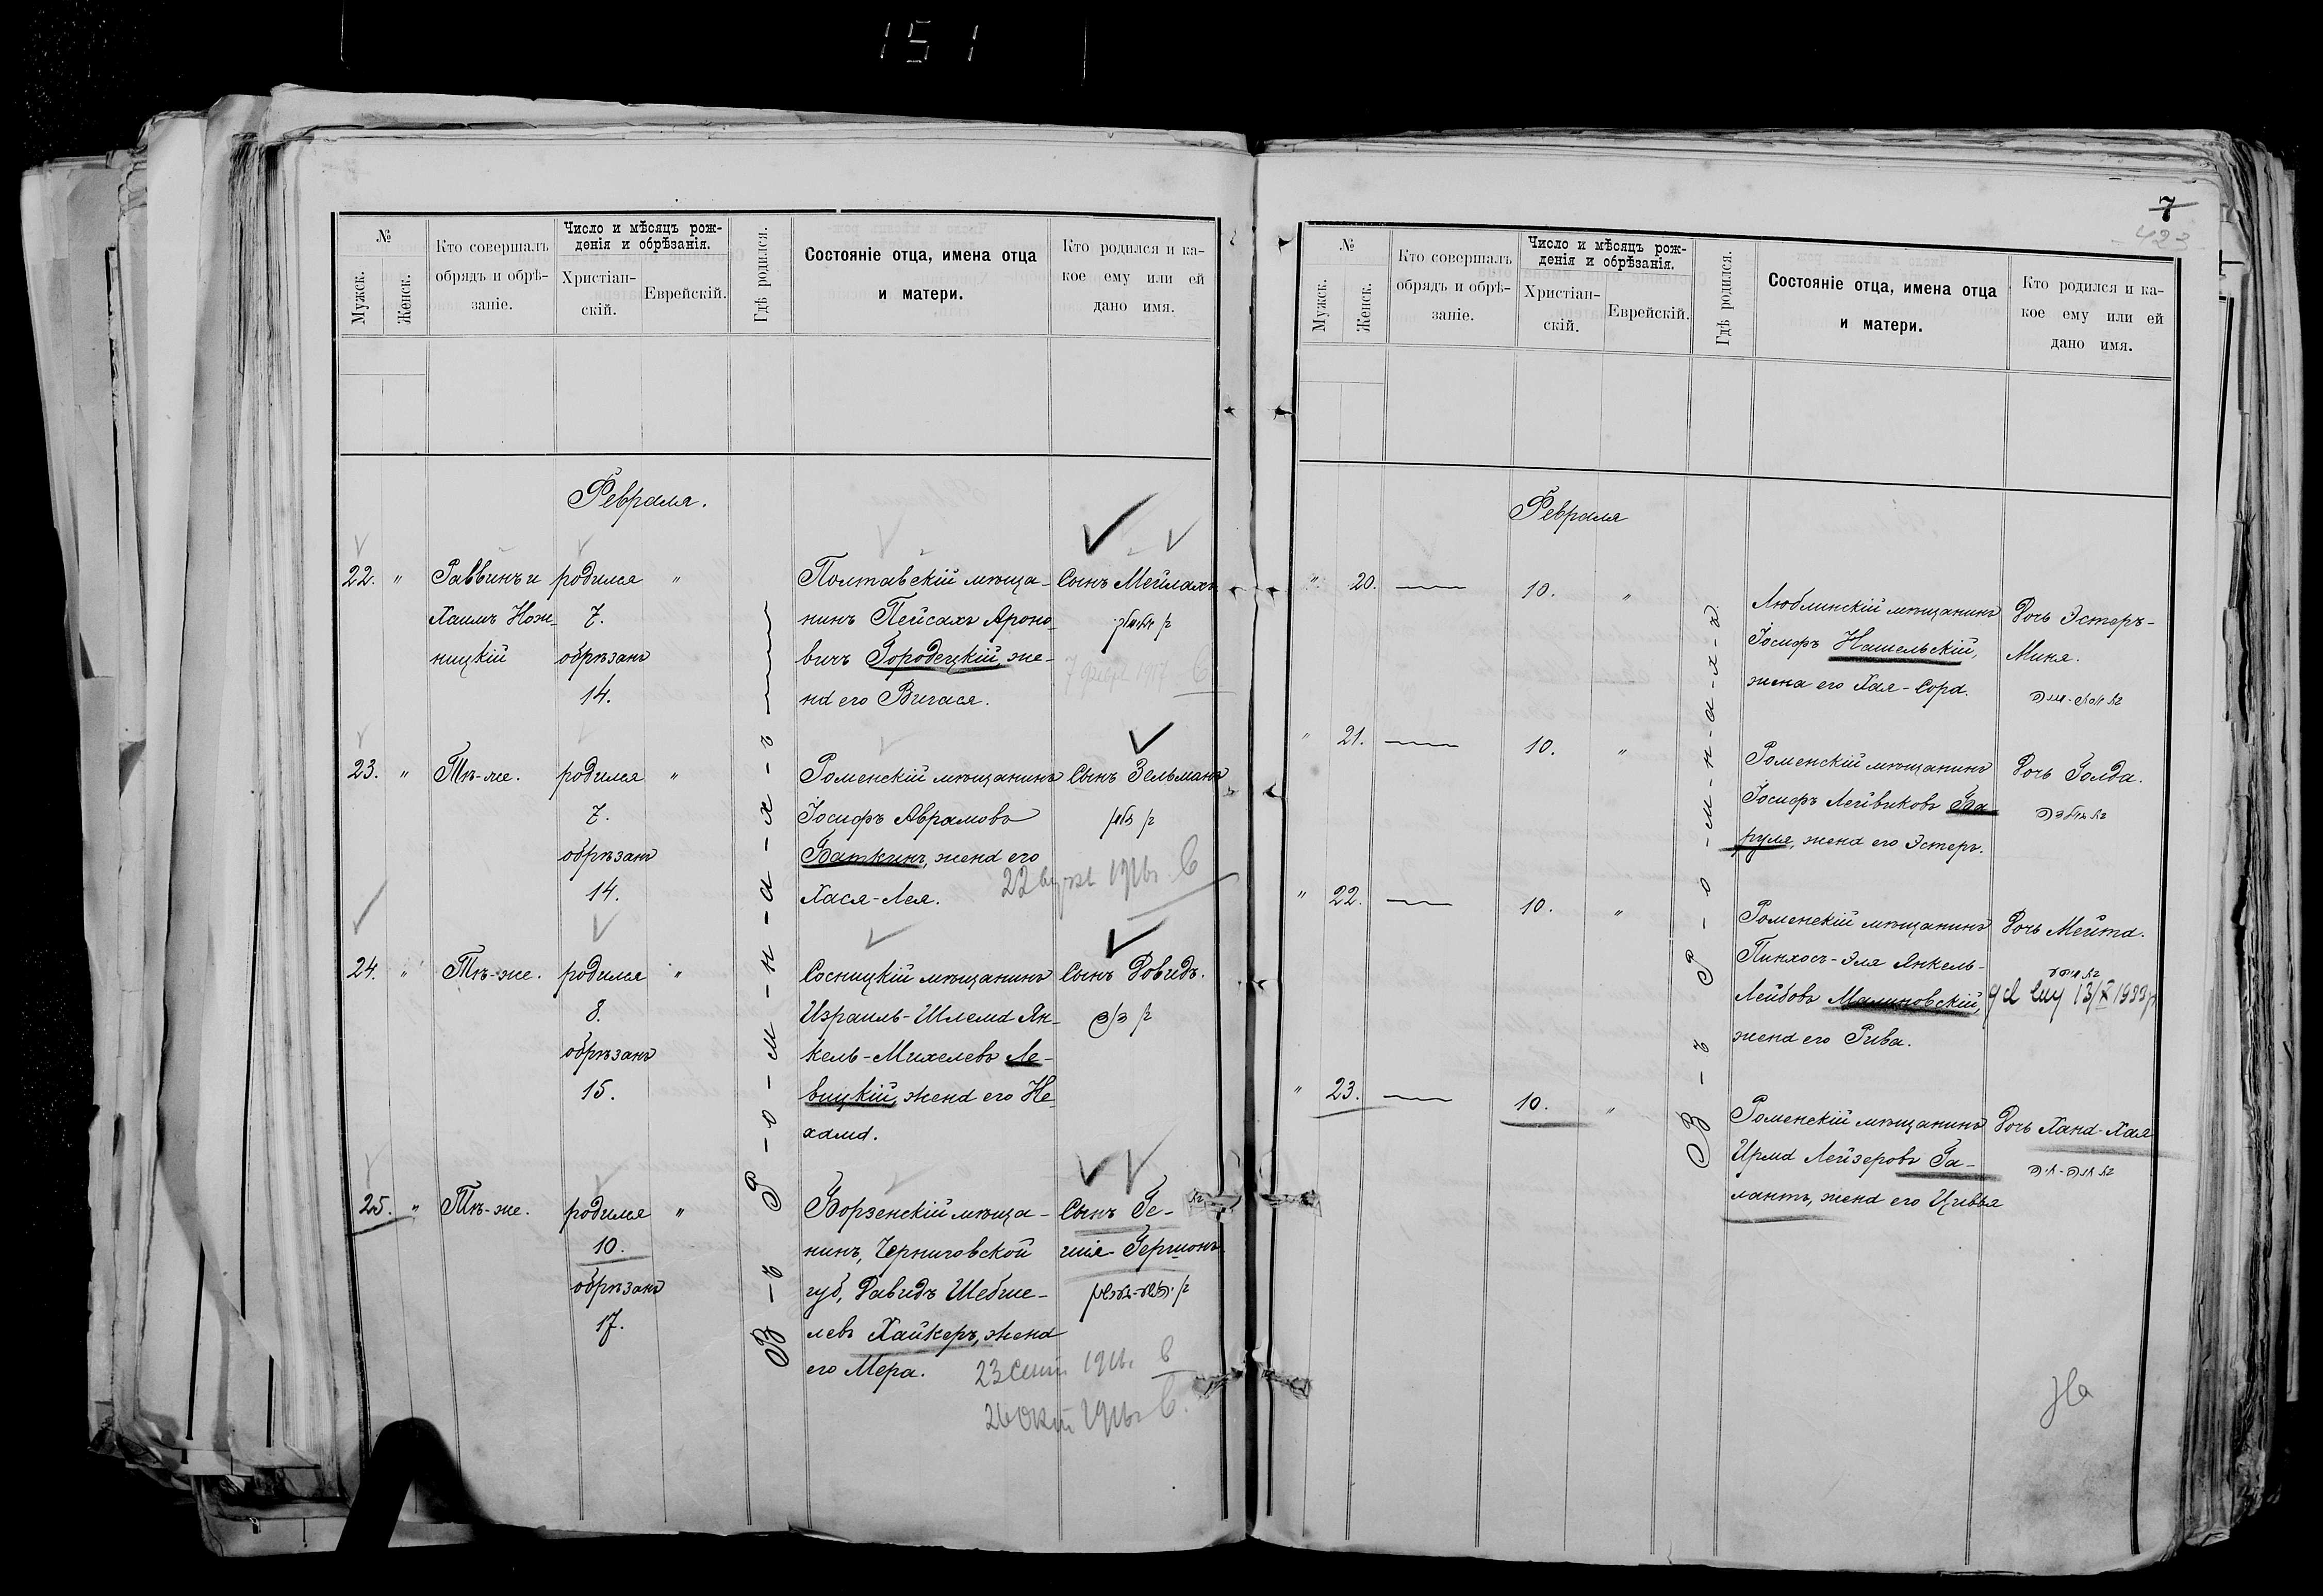 151
№
Мужск.
Женск.
Кто совершалъ
обрядъ и обрѣ-
заніе.
Число и мѣсяцъ рож-
денія и обрѣзанія.
Христіан-
скій.
Еврейскій.
Гдѣ родился.
Состояніе отца, имена отца
и матери.
Кто родился и ка-
кое ему или ей
дано имя.
Февраля.
В-ъ Р-о-м-н-а-х-ъ
22. " Раввинъ и
Хаимъ Нож-
ницкій
родился "
7.
обрѣзанъ
14.
Полтавскій мѣща-
нинъ Пейсахъ Ароно-
вичъ Городецкій, же-
на его Вигася.
Сынъ Мейлахъ
23. " Тѣ-же.
родился "
7.
обрѣзанъ
14.
Роменскій мѣщанинъ
Іосифъ Аврамовъ
Баткинъ, жена его
Хася-Лея.
Сынъ Зельманъ
24. " Тѣ-же.
родился "
8.
обрѣзанъ
15.
Сосницкій мѣщанинъ
Израиль-Шлема Ян-
кель-Михелевъ Ле-
вицкій, жена его Не-
хама.
Сынъ Довидъ.
25. " Тѣ-же.
родился "
10.
обрѣзанъ
17.
Борзенскій мѣща-
нинъ, Черниговской
губ, Давидъ Шебше-
левъ Хайкеръ, жена
его Мера.
Сынъ Ге-
шія-Гершонъ
7
423
№
Мужск.
Женск.
Кто совершалъ
обрядъ и обрѣ-
заніе.
Число и мѣсяцъ рож-
денія и обрѣзанія.
Христіан-
скій.
Еврейскій.
Гдѣ родился.
Состояніе отца, имена отца
и матери.
Кто родился и ка-
кое ему или ей
дано имя.
Февраля
В-ъ Р-о-м-н-а-х-ъ
" 20. — 10. "
Люблинскій мѣщанинъ
Іосифъ Нашельскій,
жена его Хая-Сора.
Дочь Эстеръ-
Миня.
" 21. — 10. "
Роменскій мѣщанинъ
Іосифъ Лейвиковъ Ба
руля, жена его Эстеръ.
Дочь Голда.
" 22. — 10. "
Роменскій мѣщанинъ
Пинхосъ-Эля Янкель-
Лейбовъ Малиновскій,
жена его Рива.
Дочь Мейта.
13/X 1933
" 23. — 10. "
Роменскій мѣщанинъ
Ирма Лейзеровъ Га-
лантъ, жена его Цивья
Дочь Хана-Хая
На